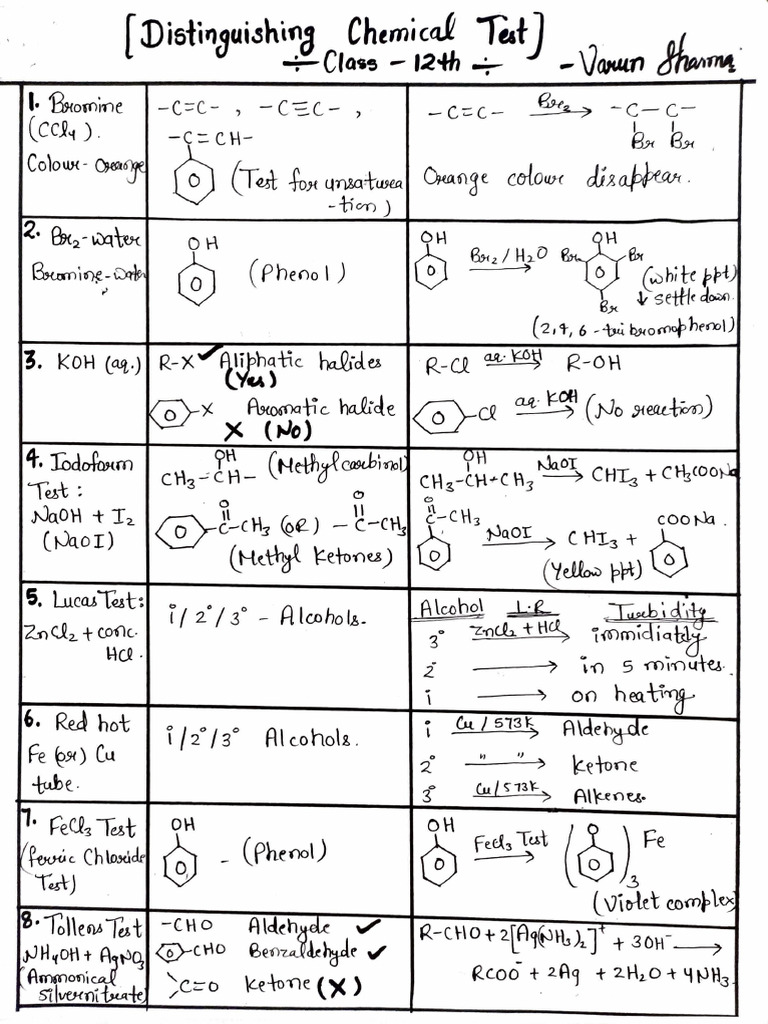 [Distinguishing Chemical Test]
÷ Class - 12th ÷ - Varun Sharma
1. Bromine
(CCl4).
Colour - Oreange
-C=C- , -C≡C- ,
-C=CH-
(Test for unsaturea
-tion)
-C=C- Br2 → -C-C-
Br Br
Orange colour disappear.
2. Br2-water
Bromine-water
OH
(Phenol)
OH Br2/H2O → OH
Br Br
Br
(white ppt)
↓ settle down.
(2,4,6-tribromophenol)
3. KOH (aq.)
R-X ✓ Aliphatic halides
(Yes)
-X Aromatic halide
X (No)
R-Cl aq. KOH → R-OH
-Cl aq. KOH → (No reaction)
4. Iodoform
Test:
NaOH + I2
(NaOI)
OH
CH3-CH- (Methyl carbinol)
O O
-C-CH3 (OR) -C-CH3
(Methyl Ketones)
OH
CH3-CH-CH3 NaOI → CHI3 + CH3COONa
O
C-CH3 NaOI → CHI3 + COONa.
(Yellow ppt)
5. Lucas Test:
ZnCl2 + conc.
HCl.
i/2°/3° - Alcohols.
Alcohol L.R Turbidity
3° ZnCl2 + HCl → immidiately
2° → in 5 minutes.
i → on heating
6. Red hot
Fe (or) Cu
tube.
i/2°/3° Alcohols.
i Cu/573K → Aldehyde
2° " " → Ketone
3° Cu/573K → Alkenes.
7. FeCl3 Test
(ferric Chloride
Test)
OH
- (Phenol)
OH FeCl3 Test → ( O )3 Fe
(Violet complex)
8. Tollens Test
NH4OH + AgNO3
(Ammonical
silvernitrate)
-CHO Aldehyde ✓
-CHO Benzaldehyde ✓
C=O Ketone (X)
R-CHO + 2[Ag(NH3)2]+ + 3OH- →
RCOO- + 2Ag + 2H2O + 4NH3.